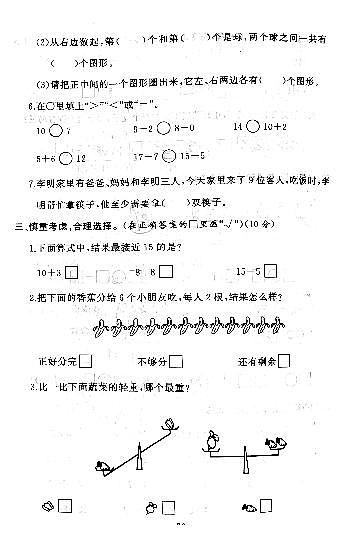 (2)从右边数起,第(  )个和第(  )个是球,两个球之间一共有
(  )个图形。
(3)请把正中间的一个图形圈出来,它左、右两边各有(  )个图形。
6.在○里填上“>”“<”或“=”。
10○7 9-2○8-0 14○10+2
5+6○12 17-7○15-5
7.李明家里有爸爸、妈妈和李明三人,今天家里来了9位客人,吃饭时,李
明帮忙拿筷子,他至少需要拿(  )双筷子。
三、慎重考虑,合理选择。(在正确答案的□里画“√”)(10分)
1.下面算式中,结果最接近15的是?
10+3□ 8□ 15-5□
2.把下面的香蕉分给6个小朋友吃,每人2根,结果怎么样?
正好分完□ 不够分□ 还有剩余□
3.比一比下面蔬菜的轻重,哪个最重?